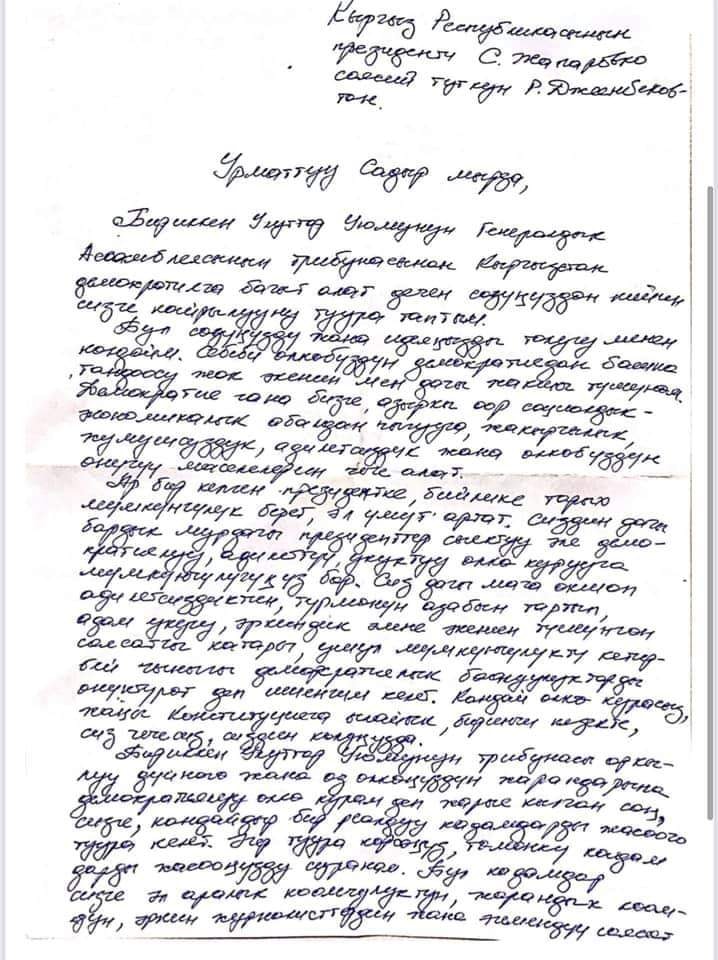 Кыргыз Республикасынын
президенти С. Жапаровко
саясий туткун Р. Джеенбеков-
тон.
Урматтуу Садыр мырза,
Бириккен Улуттар Уюмунун Генералдык
Ассамблеясынын трибунасынан Кыргызстан
демократияга багыт алат деген сөзүңүздөн кийин
сизге кайрылууну туура таптым.
Бул сөзүңүздү жана идеяңызды толугу менен
колдойм. Себеби өлкөбүздүн демократиядан башка
тандоосу жок экенин мен дагы жакшы түшүнөм.
Демократия гана бизге, азыркы оор социалдык-
экономикалык абалдан чыгууга, жакырчылык,
жумушсуздук, адилетсиздик жана өлкөбүздүн
өнүгүү маселелерин чече алат.
Ар бир келген президентке, бийликке тарых
мүмкүнчүлүк берет, эл үмүт артат. Сиздин дагы
бардык мурдагы президенттер сыяктуу эле демо-
кратиялуу, адилеттүү, укуктуу өлкө курууга
мүмкүнчүлүгүңүз бар. Сиз дагы мага окшоп
адилетсиздиктин, түрмөнүн азабын тартып,
адам укугу, эркиндик эмне экенин түшүнгөн
саясатчы катары, ушул мүмкүнчүлүктү кетир-
бей чыныгы демократиялык баалуулуктарды
өнүктүрөт деп ишенгим келет. Кандай өлкө курасыз,
жаңы Конституцияга ылайык, биринчи кезекте,
сиз чечесиз, сиздин колуңузда.
Бириккен Улуттар Уюмунун трибунасы арк-
луу дүйнөгө жана өз өлкөңүздүн жарандарына
демократиялуу өлкө курам деп жарыя кылган соң,
сизге, кандайдыр бир реалдуу кадамдарды жасоого
туура келет. Эгер туура көрсөңүз, төмөнкү кадам
дарды жасооңузду суранам. Бул кадамдар
сизге эл аралык коомчулуктун, жарандык коом-
дун, эркин журналисттердин жана элдин саясат